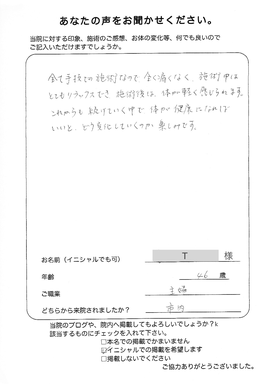 あなたの声をお聞かせください。
当院に対する印象、施術のご感想、お体の変化等、何でも良いので
ご記入いただけますでしょうか。
全て手技での施術なので全く痛くなく、施術中は
とてもリラックスでき 施術後は、体が軽く感じられます。
これからも続けていく中で体が健康になれば
いいと、どう変化していくのか楽しみです。
お名前（イニシャルでも可） T 様
年齢 46 歳
ご職業 主婦
どちらから来院されましたか？ 市内
当院のブログや、院内へ掲載してもよろしいでしょうか？k
該当するものにチェックを入れて下さい。
□本名での掲載でかまいません
☑イニシャルでの掲載を希望します
□掲載しないでください
ご協力ありがとうございました。